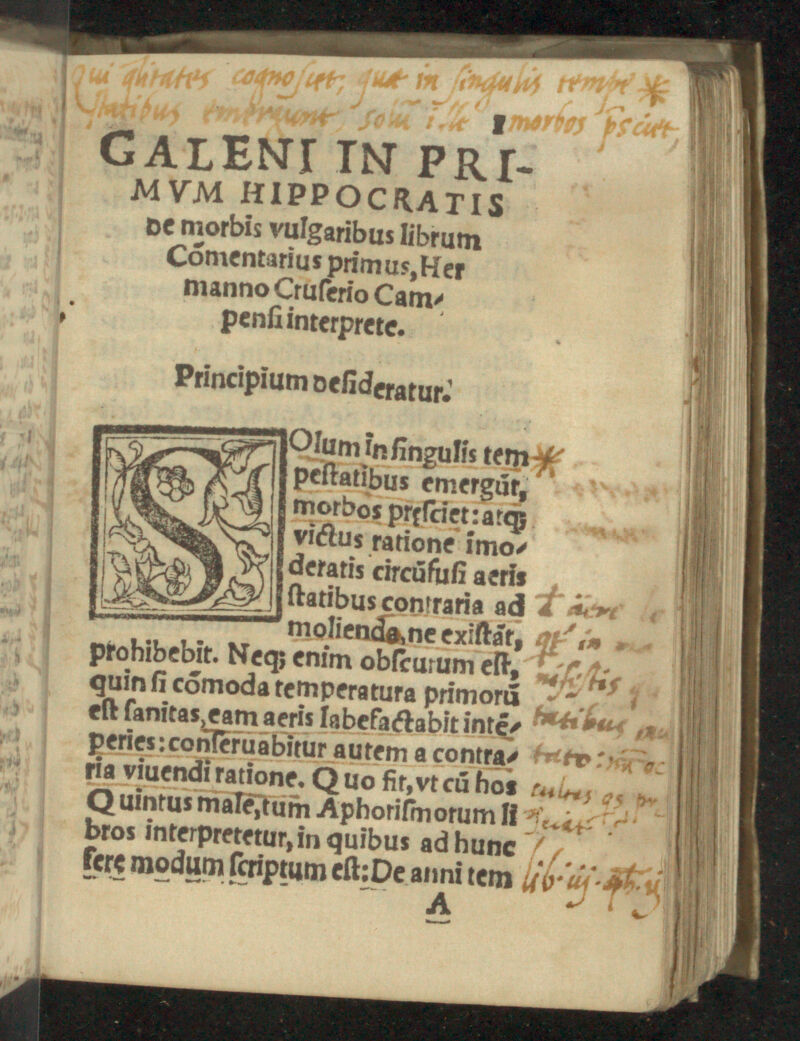 Qui q̃litates cognoscet, quæ in singulis tempe *
statibus emergunt, solũ ille morbos p̃sciet,
1
GALENI IN PRI-
MVM HIPPOCRATIS
De morbis vulgaribus librum
Cõmentarius primus, Her
manno Cruſerio Cam⸗
penſi interprete.
Principium deſideratur.
SOlum in ſingulis tem *
peſtatibus emergũt,
morbos pręſciet: atq;
victus ratione imo⸗
deratis circũfuſi aeris
ſtatibus contraria ad
molienda, ne exiſtãt,
prohibebit. Neq; enim obſcurum eſt,
quin ſi cõmoda temperatura primorũ
eſt ſanitas, eam aeris labefactabit intẽ⸗
peries: conſeruabitur autem a contra⸗
ria viuendi ratione. Quo fit, vt cũ hos
Quintus male, tum Aphoriſmorum li
bros interpretetur, in quibus ad hunc
fere modum ſcriptum eſt: De anni tem
A
aere
in
lib. iij. aph. ij